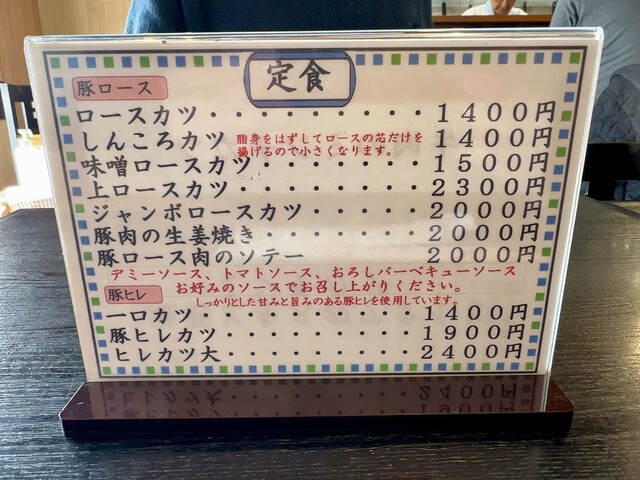 定食
豚ロース
ロースカツ・・・・・・・・・1400円
しんころカツ 脂身をはずしてロースの芯だけを 1400円
揚げるので小さくなります。
味噌ロースカツ・・・・・・・1500円
上ロースカツ・・・・・・・・2300円
ジャンボロースカツ・・・・・2000円
豚肉の生姜焼き・・・・・・・2000円
豚ロース肉のソテー・・・・・2000円
デミーソース、トマトソース、おろしバーベキューソース
お好みのソースでお召し上がりください。
豚ヒレ
しっかりとした甘みと旨みのある豚ヒレを使用しています。
一口カツ・・・・・・・・・・1400円
豚ヒレカツ・・・・・・・・・1900円
ヒレカツ大・・・・・・・・・2400円